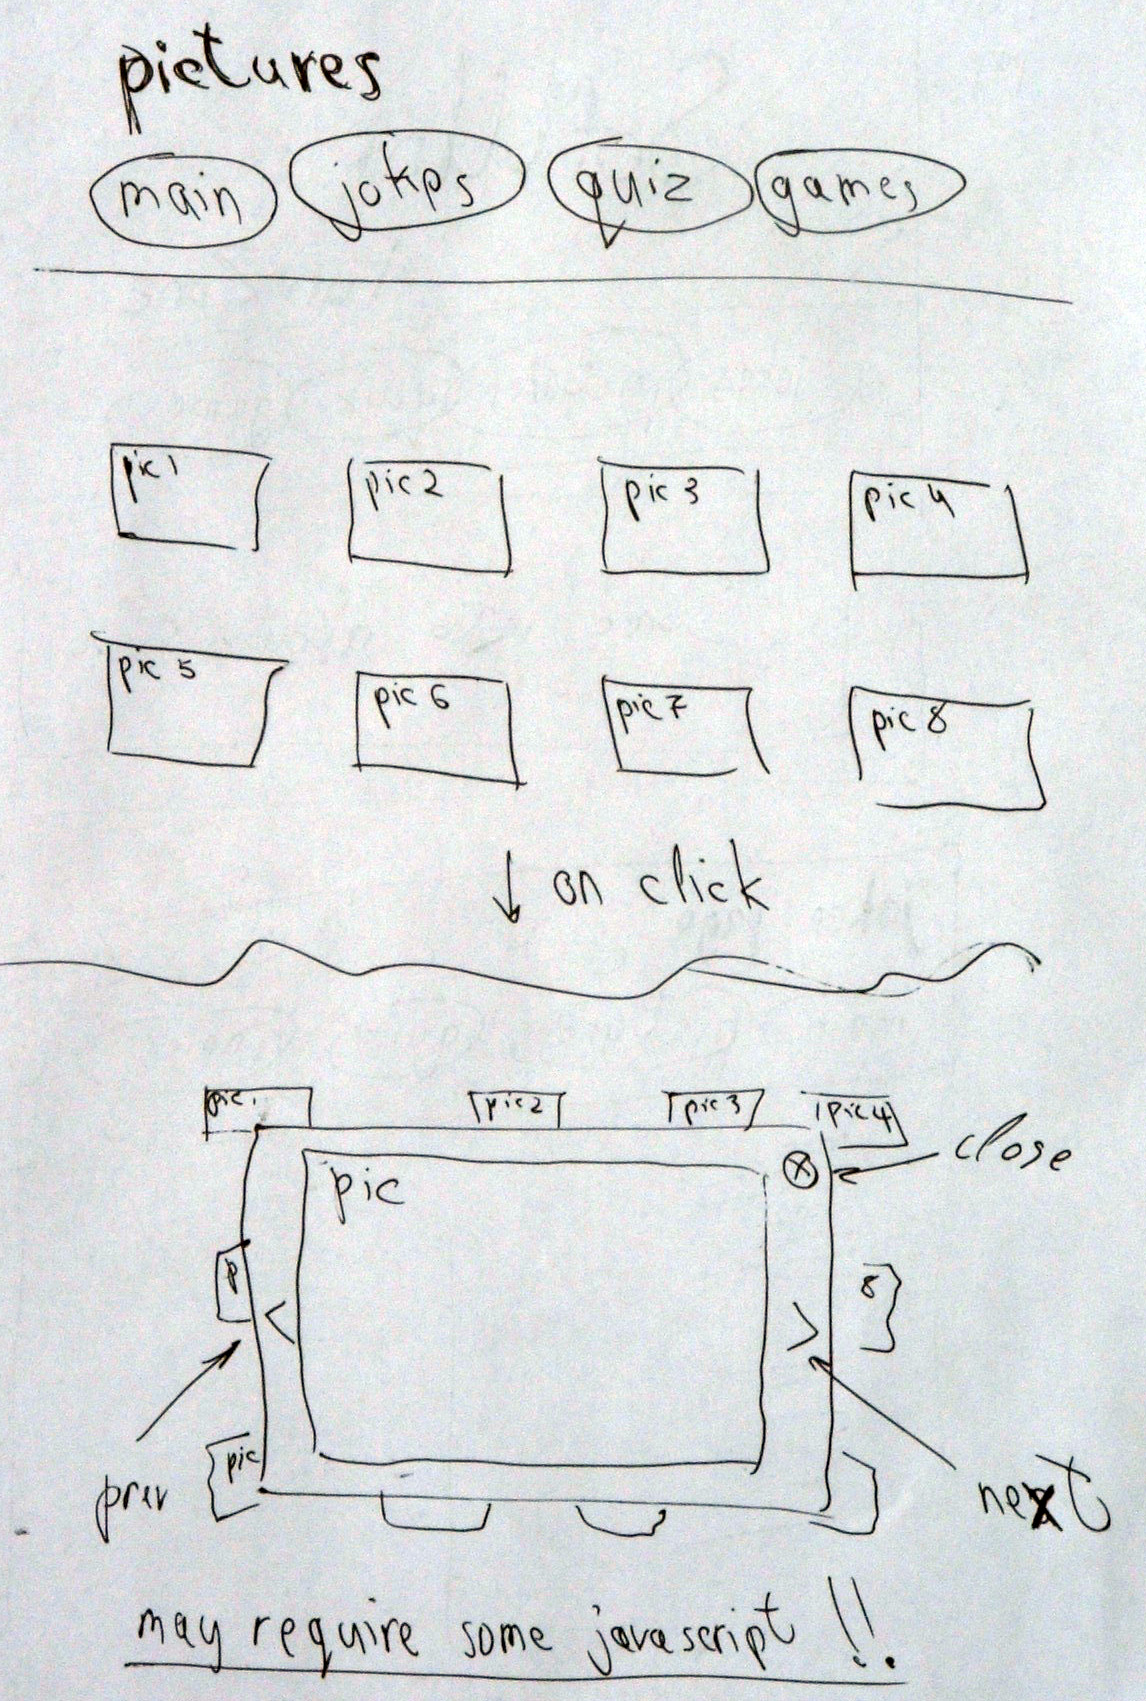 pictures
main jokes quiz games
pic 1 pic 2 pic 3 pic 4
pic 5 pic 6 pic 7 pic 8
↓ on click
pic 1 pic 2 pic 3 pic 4
close
pic
p
8
<
>
pic
prev
next
may require some javascript !!